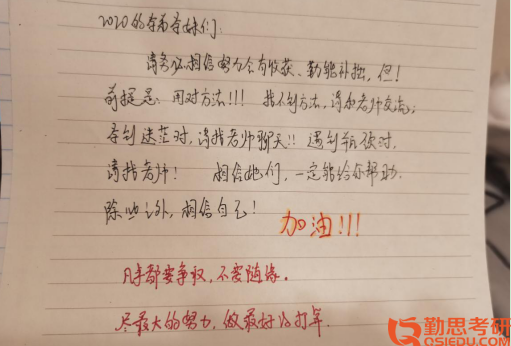 2020的学弟学妹们:
请务必相信努力会有收获、勤能补拙,但!
前提是:用对方法!!! 找不到方法,请和老师交流;
学到迷茫时,请找老师聊天!! 遇到瓶颈时,
请找老师! 相信她们,一定能给你帮助.
除此之外,相信自己!
加油!!!
凡事都要争取,不要随缘.
尽最大的努力,做最好的打算.
勤思考研
QSIEDU.COM